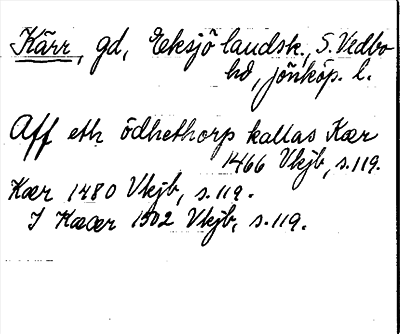 Kärr, gd, Eksjö landsk., S. Vedbo
hd, Jönköp. l.
Aff eth ödhethorp kallas Kær
1466 Vkjb, s. 119.
Kær 1480 Vkjb, s. 119.
I Kæær 1502 Vkjb, s. 119.